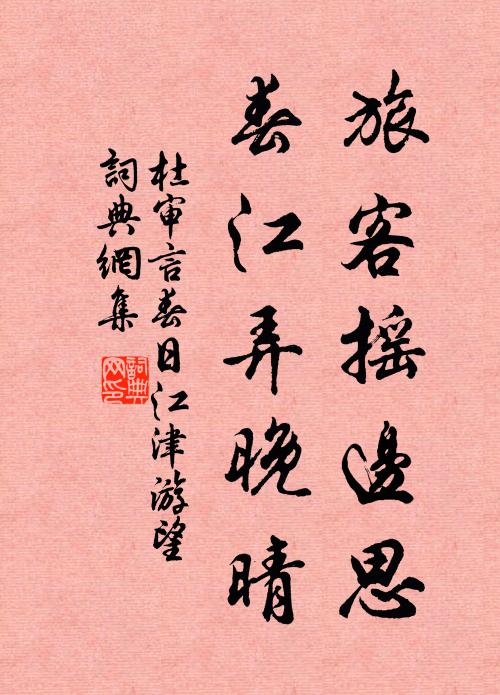 旅客摇邊思
春江弄晚晴
杜审言春日江津游望
詞典網集
詞典網印